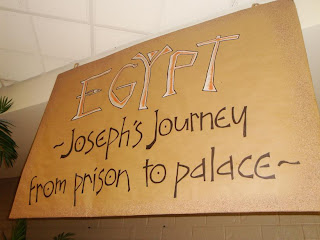 EGYPT
~Joseph's Journey
from prison to palace~